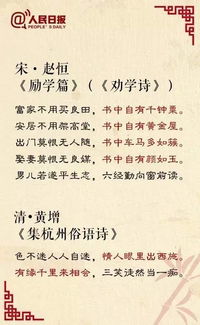 @人民日报
PEOPLE'S DAILY
宋·赵恒
《励学篇》（《劝学诗》）
富家不用买良田，书中自有千钟粟。
安居不用架高堂，书中自有黄金屋。
出门莫恨无人随，书中车马多如簇。
娶妻莫恨无良媒，书中自有颜如玉。
男儿若遂平生志，六经勤向窗前读。
清·黄增
《集杭州俗语诗》
色不迷人人自迷，情人眼里出西施。
有缘千里来相会，三笑徒然当一痴。